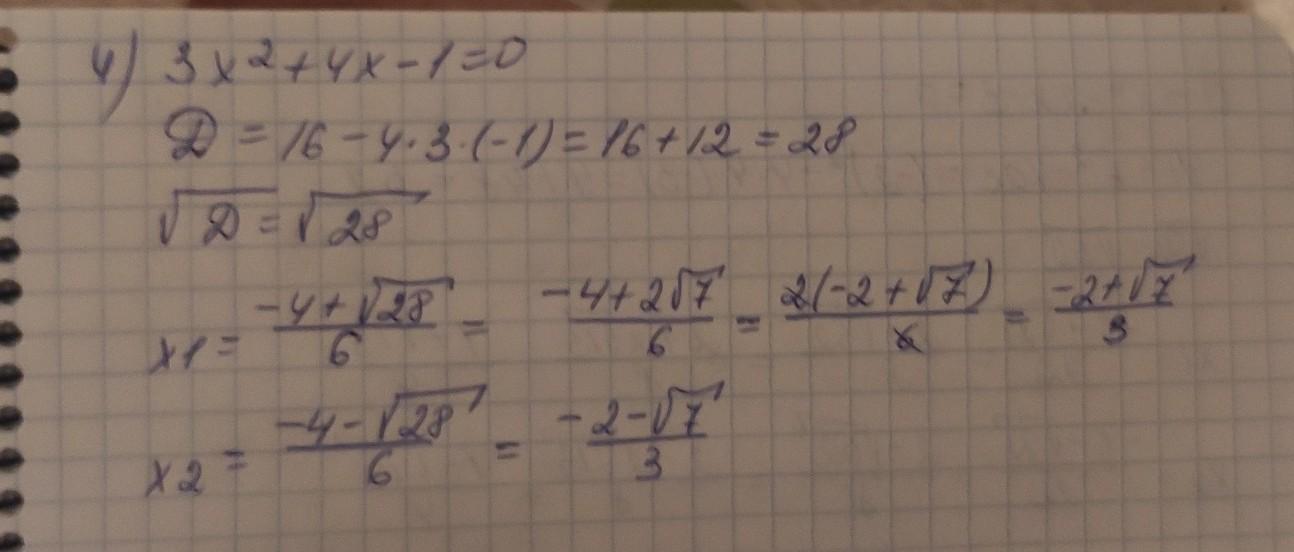 4) 3x²+4x-1=0
D = 16 - 4·3·(-1) = 16+12 = 28
√D = √28
x1 = (-4+√28)/6 = (-4+2√7)/6 = 2(-2+√7)/6 = (-2+√7)/3
x2 = (-4-√28)/6 = (-2-√7)/3